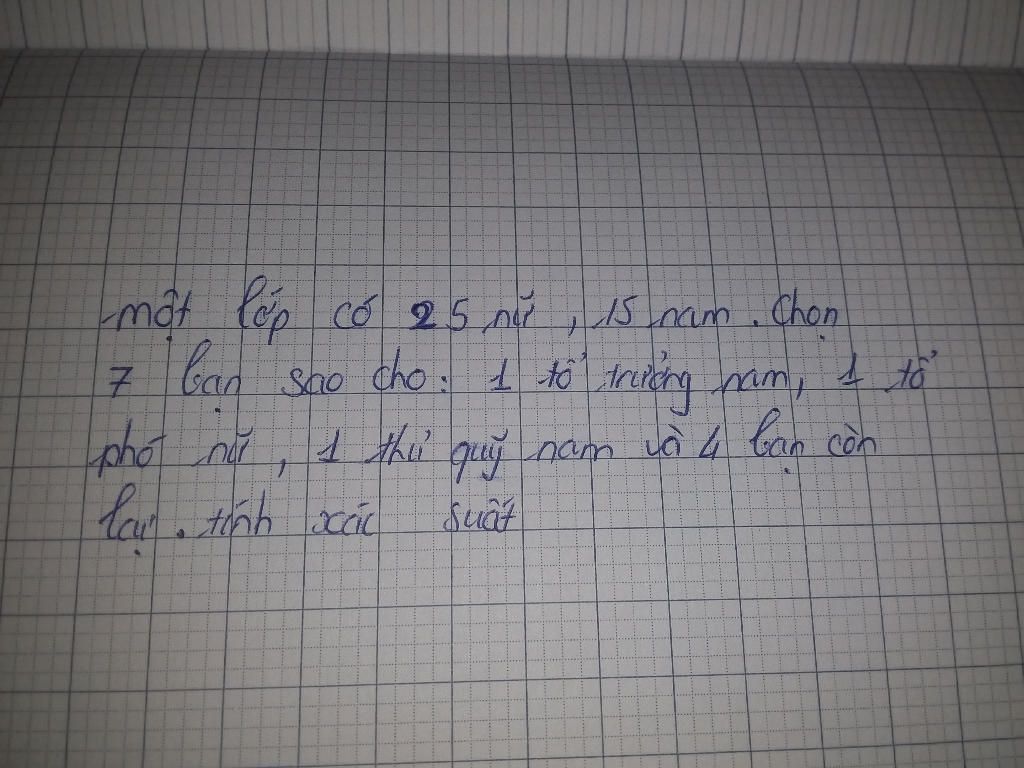 một lớp có 25 nữ, 15 nam. Chọn
7 bạn sao cho: 1 tổ trưởng nam, 1 tổ
phó nữ, 1 thủ quỹ nam và 4 bạn còn
lại. tính xác suất